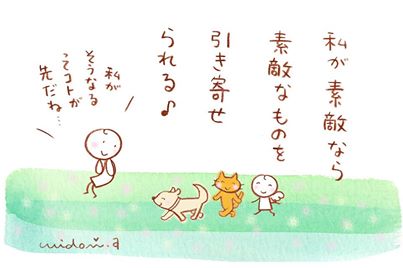 私が 素敵なら
素敵なものを
引き寄せ
られる♪
私が
そうなる
ってコトが
先だね…
midori.a